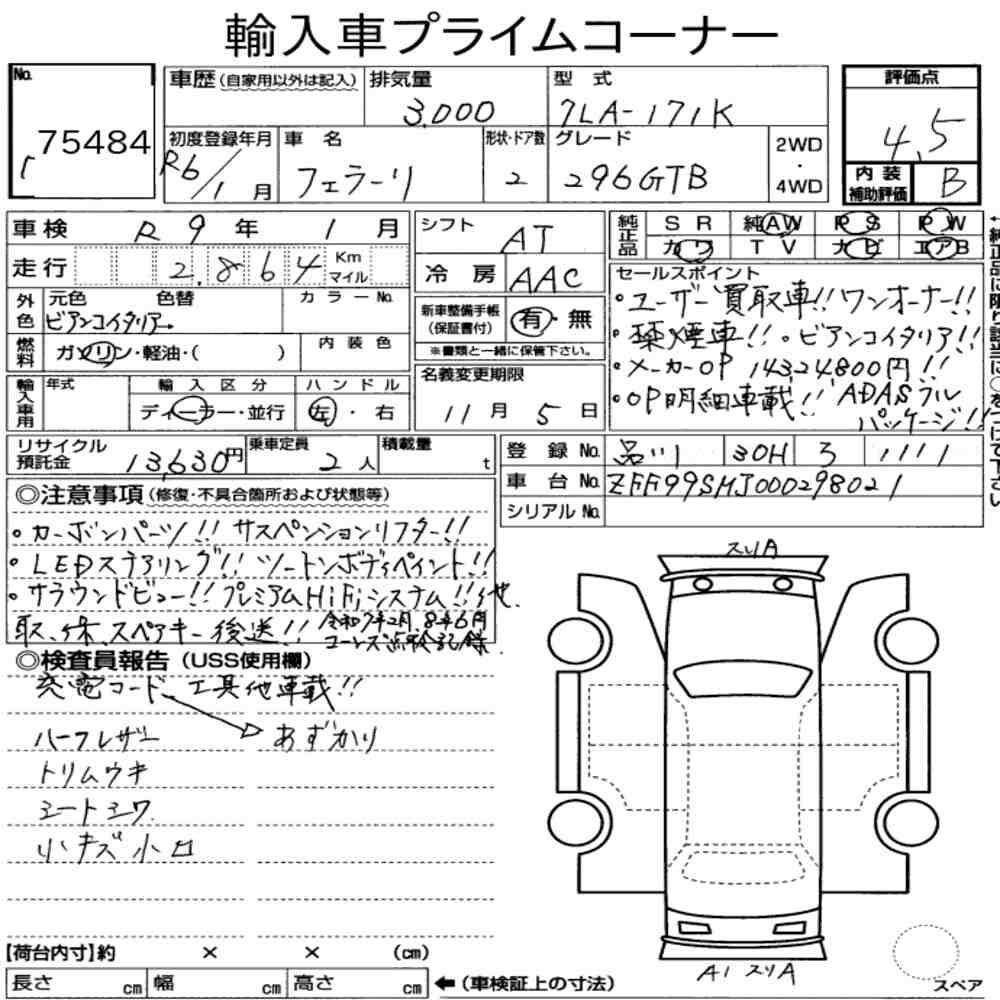 輸入車プライムコーナー
No.
75484
車歴(自家用以外は記入)
排気量
3,000
型式
7LA-171K
初度登録年月
R6/1月
車名
フェラーリ
形状・ドア数
2
グレード
296GTB
2WD
・
4WD
評価点
4.5
内装
補助評価
B
車検 R9年 1月
走行 2,864 Km マイル
外色
元色 色替 カラーNo.
ビアンコイタリアー
燃料
ガソリン・軽油・( )
内装色
輸入車用
年式
輸入区分
ディーラー・並行
ハンドル
左・右
シフト
AT
冷房
AAC
新車整備手帳
(保証書付)
有・無
※書類と一緒に保管下さい。
名義変更期限
11月 5日
純正品
SR 純AW PS PW
カワ TV ナビ エアB
セールスポイント
・ユーザー買取車!!ワンオーナー!!
・禁煙車!!・ビアンコイタリア!!
・メーカーOP 14324800円!!
・OP明細車載!! ADASフル
パッケージ!!
←純正品に限り該当に○をつけて下さい
リサイクル
預託金
13,630円
乗車定員
2人
積載量
t
登録No. 品川 30H ろ 1111
車台No. ZFF99SMJ000298021
シリアルNo.
◎注意事項(修復・不具合箇所および状態等)
・カーボンパーツ!! サスペンションリフター!!
・LEDステアリング!! ツートンボディペイント!!
・サラウンドビュー!! プレミアムHiFiシステム!!他.
取、保、スペアキー後送!! 令和7年2月、8年6月
コーンズ点検記録.
◎検査員報告(USS使用欄)
充電コード、工具他車載!!
ハーフレザー あずかり
トリムウキ
シートシワ
小キズ小凹
スリA
A1 スリA
【荷台内寸】約 × × (cm)
長さ cm 幅 cm 高さ cm ←(車検証上の寸法)
スペア